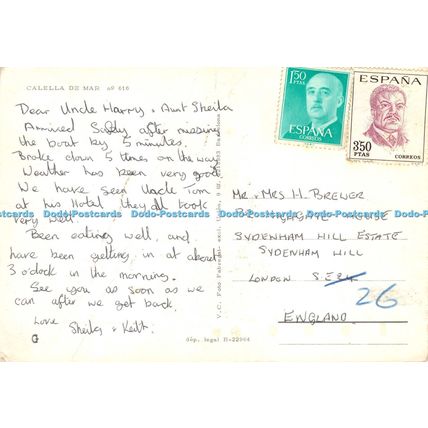 CALELLA DE MAR nº 616
Dear Uncle Harry & Aunt Sheila
Arrived Safely after missing
the boat by 5 minutes.
Broke down 5 times on the way
Weather has been very good
We have seen Uncle Tom
at his Hotel they all look
very well.
Been eating well, and
have been getting in at about
3 o'clock in the morning.
See you as soon as we
can after we get back.
Love
Sheila & Keith.
G
dép. legal B-22964
V. C. Foto
1'50
PTAS
ESPAÑA
CORREOS
ESPAÑA
3'50
PTAS
CORREOS
Mr & Mrs H. BREWER
HOUSE
SYDENHAM HILL ESTATE
SYDENHAM HILL
LONDON S.E.
26
ENGLAND
Dodo-Postcards Dodo-Postcards Dodo-Postcards Dodo-Postcards